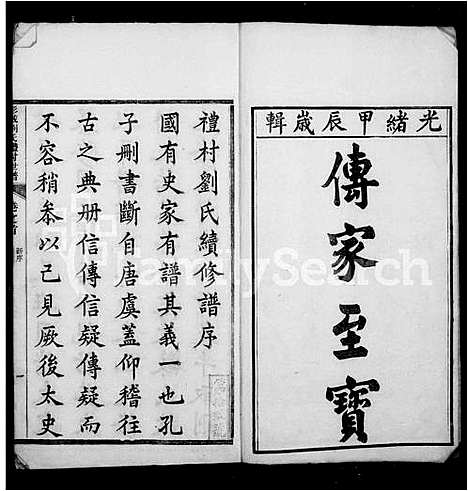 光緒甲辰歲輯
傳家至寶
禮村劉氏續修譜序
國有史家有譜其義一也孔
子刪書斷自唐虞蓋仰稽往
古之典册信傳信疑傳疑而
不容稍叅以己見厥後太史
新序
一
FamilySearch